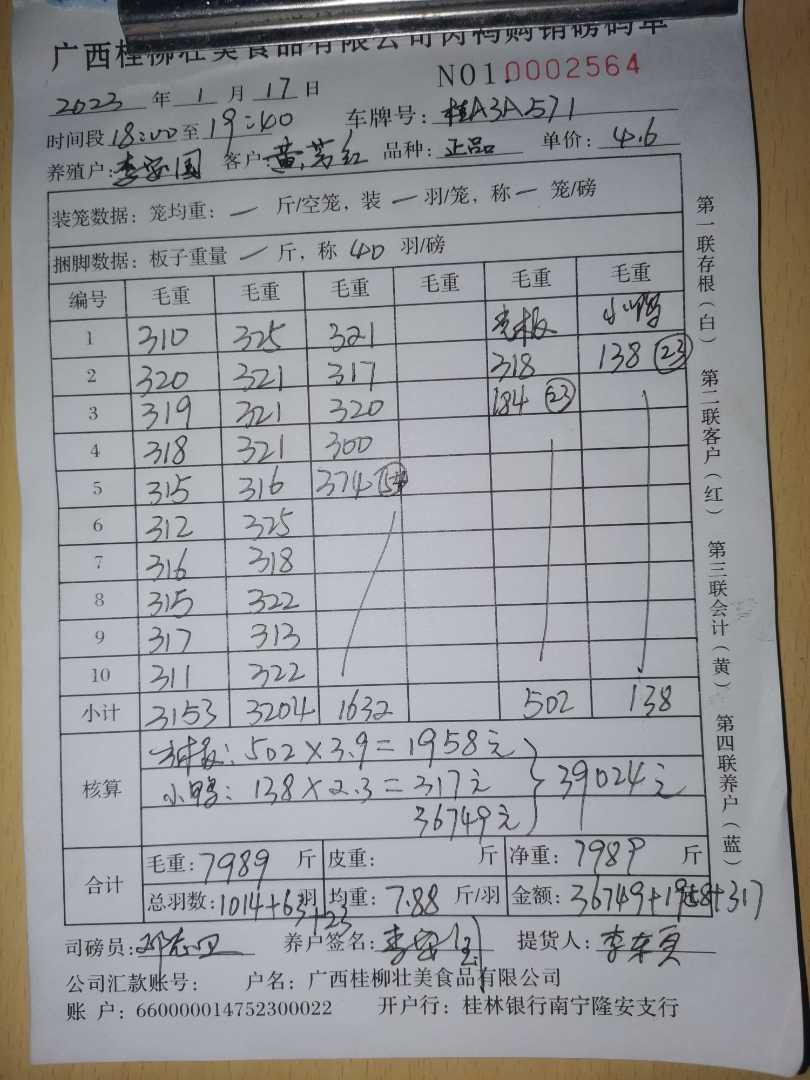 广西桂柳壮美食品有限公司肉鸭购销磅码单
NO1.0002564
2023 年 1 月 17 日
时间段 18:00 至 19:40 车牌号: 桂A3A571
养殖户: 李安国 客户: 黄芳红 品种: 正品 单价: 4.6
装笼数据: 笼均重: — 斤/空笼, 装 — 羽/笼, 称 — 笼/磅
捆脚数据: 板子重量 — 斤, 称 40 羽/磅
编号 毛重 毛重 毛重 毛重 毛重
1 310 325 321 壳板 小鸭
2 320 321 317 318 138 (23)
3 319 321 320 184 (23)
4 318 321 300
5 315 316 374
6 312 325
7 316 318
8 315 322
9 317 313
10 311 322
小计 3153 3204 1632 502 138
核算
502×3.9=1958元
小鸭: 138×2.3=317元
36749元
39024元
合计
毛重: 7989 斤 皮重: 斤 净重: 7989 斤
总羽数: 1014+63+23 羽 均重: 7.88 斤/羽 金额: 36749+1958+317
司磅员: 养户签名: 提货人:
公司汇款账号: 户名: 广西桂柳壮美食品有限公司
账 户: 660000014752300022 开户行: 桂林银行南宁隆安支行
第一联存根(白) 第二联客户(红) 第三联会计(黄) 第四联养户(蓝)